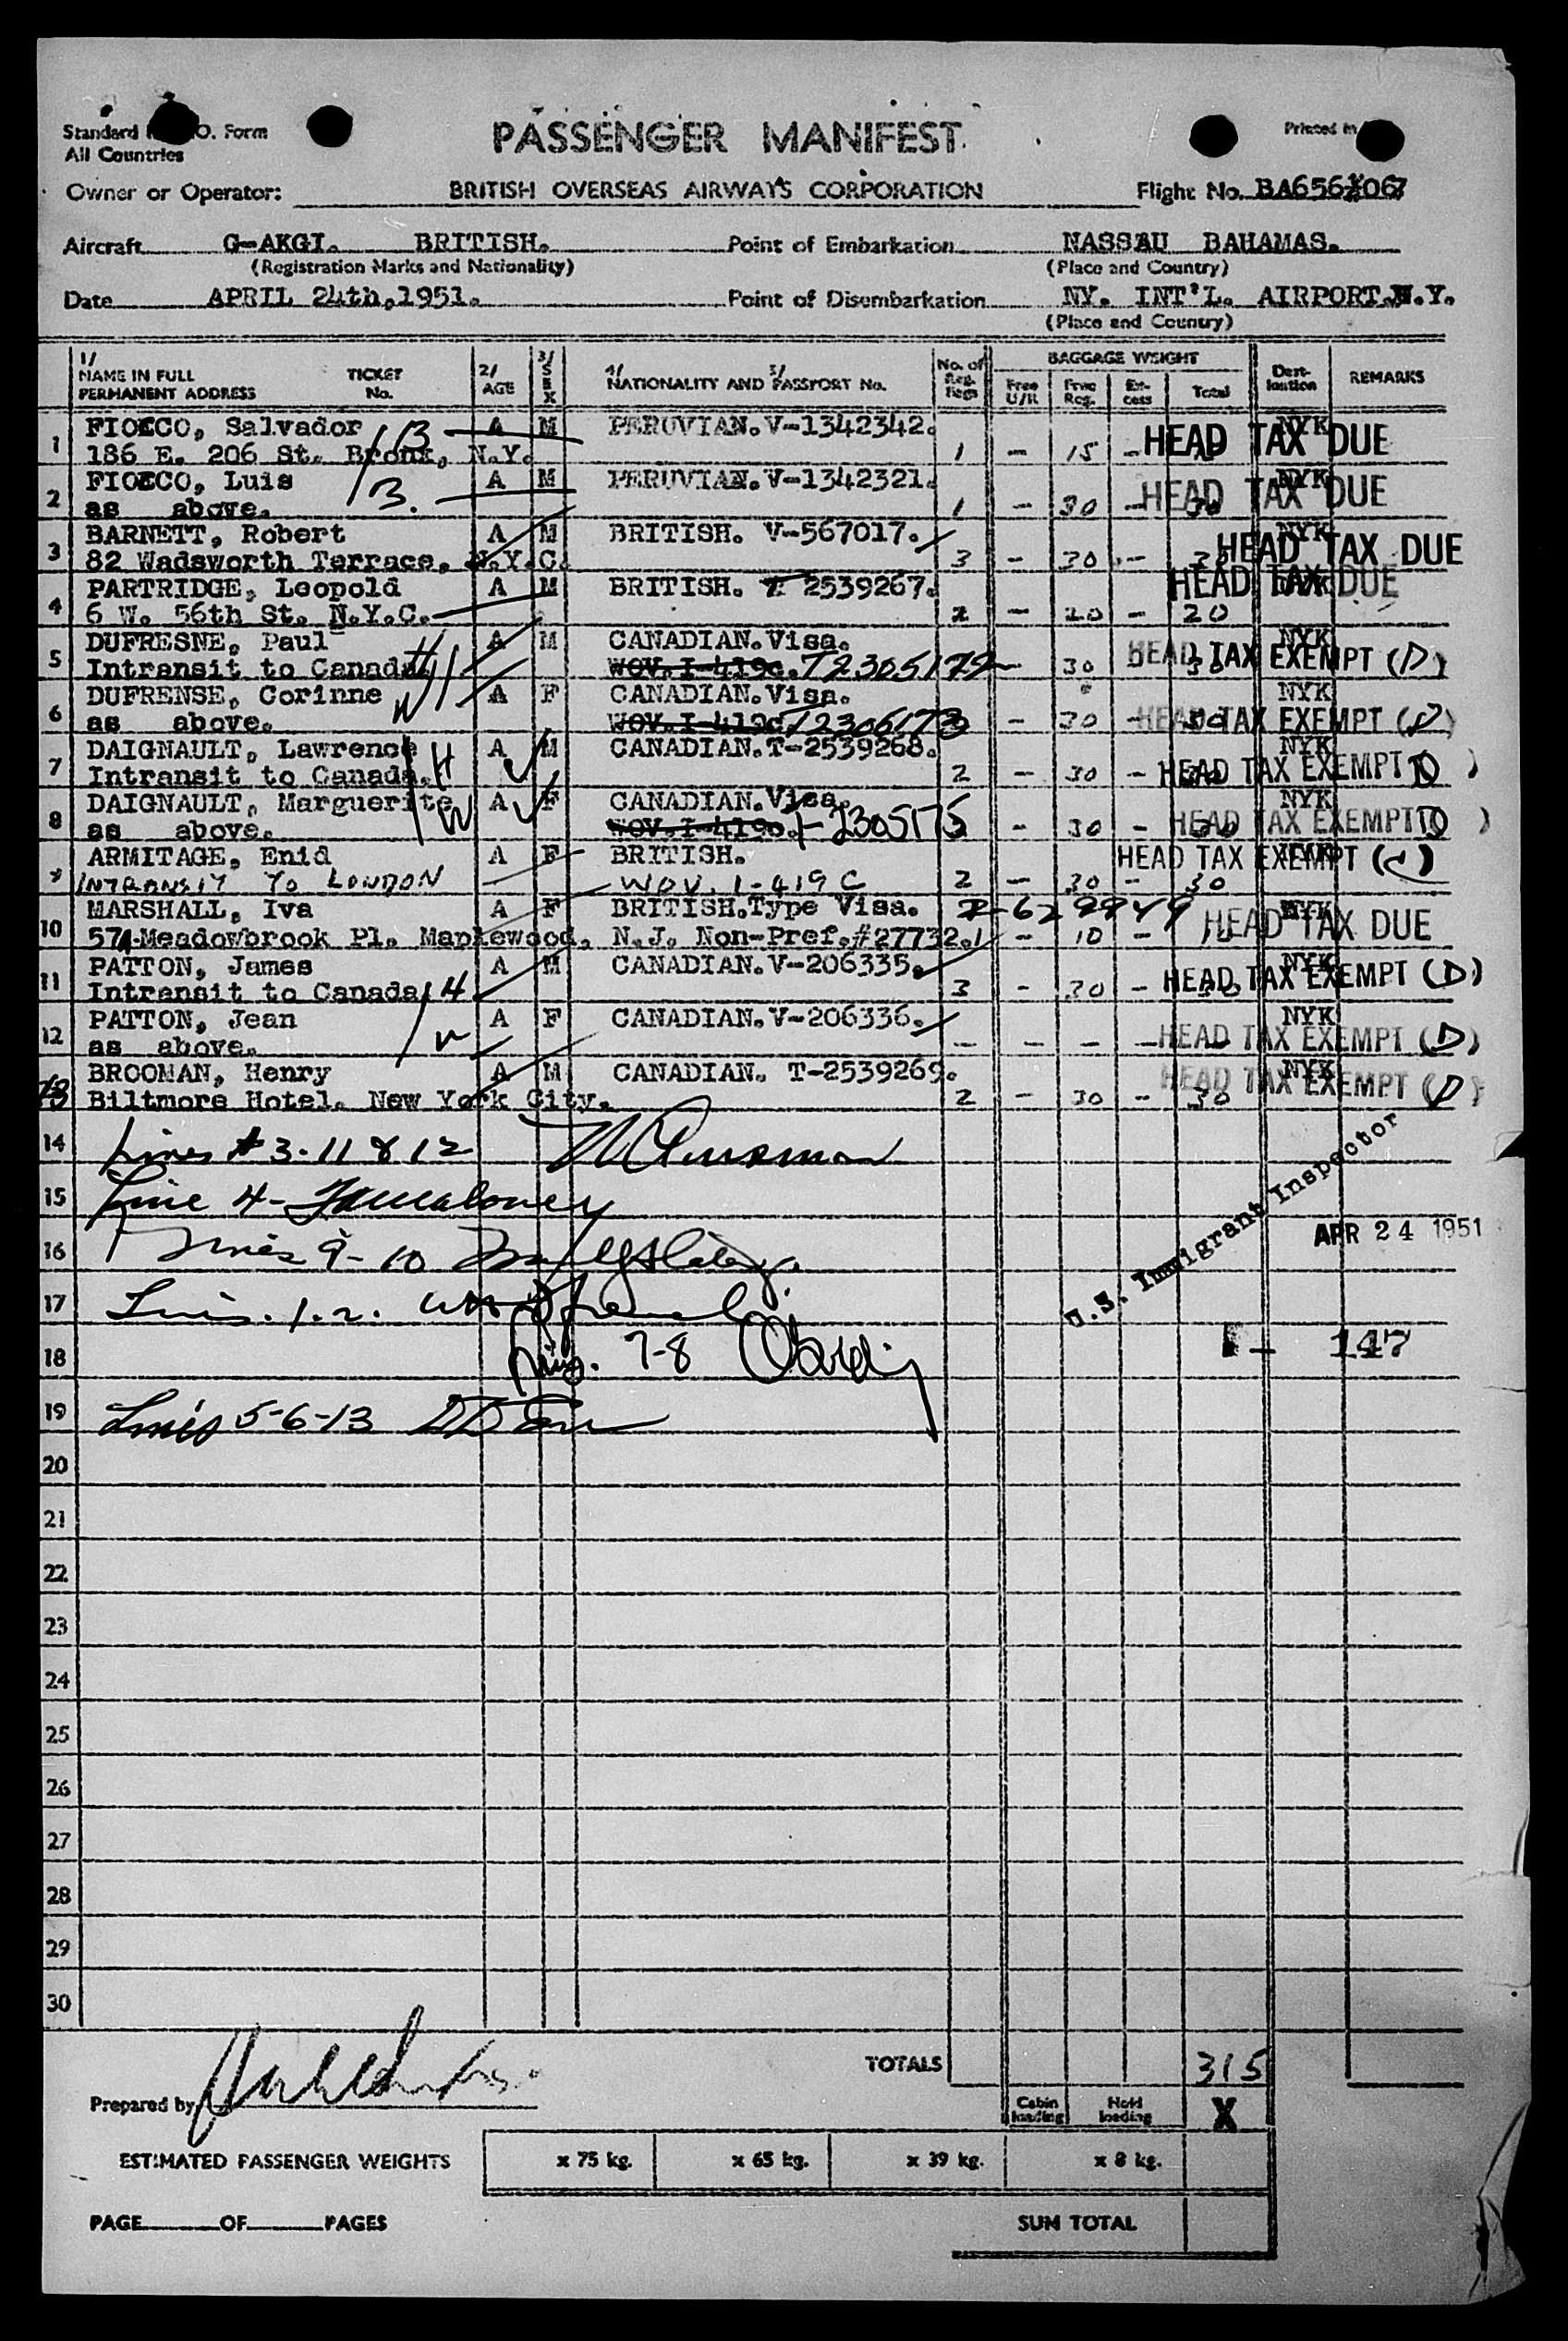 Standard I O. Form
All Countries
PASSENGER MANIFEST.
Printed in
Owner or Operator: BRITISH OVERSEAS AIRWAYS CORPORATION Flight No. BA656 067
Aircraft G-AKGI. BRITISH. Point of Embarkation NASSAU BAHAMAS.
(Registration Marks and Nationality) (Place and Country)
Date APRIL 24th,1951. Point of Disembarkation NY. INT'L. AIRPORT.N.Y.
(Place and Country)
1/ NAME IN FULL PERMANENT ADDRESS TICKET No. 2/ AGE 3/ SEX 4/ 5/ NATIONALITY AND PASSPORT No. No. of Reg. Bags BAGGAGE WEIGHT Free U/R Free Reg. Excess Total Destination REMARKS
1 FIOCCO, Salvador 13 A M PERUVIAN. V-1342342. NYK
186 E. 206 St. Bronx, N.Y. 1 - 15 - HEAD TAX DUE
2 FIOCCO, Luis A M PERUVIAN. V-1342321. NYK
as above. 13. 1 - 30 - 30 HEAD TAX DUE
3 BARNETT, Robert A M BRITISH. V-567017. NYK
82 Wadsworth Terrace. N.Y.C. 3 - 30 - 30 HEAD TAX DUE
4 PARTRIDGE, Leopold A M BRITISH. T 2539267. HEAD TAX DUE
6 W. 56th St. N.Y.C. 2 - 20 - 20
5 DUFRESNE, Paul A M CANADIAN. Visa. NYK
Intransit to Canada WOV. I-419c. - 30 HEAD TAX EXEMPT (D)
6 DUFRENSE, Corinne W A F CANADIAN. Visa. NYK
as above. WOV. I-419c - 30 - 30 HEAD TAX EXEMPT (D)
7 DAIGNAULT, Lawrence H A M CANADIAN. T-2539268. NYK
Intransit to Canada. 2 - 30 - HEAD TAX EXEMPT D )
8 DAIGNAULT, Marguerite W A F CANADIAN. Visa. NYK
as above. WOV. I-419c. - 30 - 30 HEAD TAX EXEMPT D )
ARMITAGE, Enid A F BRITISH. HEAD TAX EXEMPT ( )
INTRANSIT TO LONDON WOV. 1-419 C 2 - 30 - 30
10 MARSHALL, Iva A F BRITISH. Type Visa. NYK
574 Meadowbrook Pl. Maplewood, N.J. Non-Pref. #27732. 1 - 10 - 10 HEAD TAX DUE
11 PATTON, James A M CANADIAN. V-206335. NYK
Intransit to Canada, 3 - 30 - 30 HEAD TAX EXEMPT (D)
12 PATTON, Jean A F CANADIAN. V-206336. NYK
as above. - - - - HEAD TAX EXEMPT (D)
13 BROOMAN, Henry A M CANADIAN. T-2539269. NYK
Biltmore Hotel. New York City. 2 - 30 - 30 HEAD TAX EXEMPT (D)
14 Lines # 3-11 & 12
15 Line 4-
16 Lines 9-10
U.S. Immigrant Inspector
APR 24 1951
17 Lines. 1. 2.
18 Lines. 7-8
147
19 Lines 5-6-13
20
21
22
23
24
25
26
27
28
29
30
TOTALS 315
Prepared by Cabin loading Hold loading X
ESTIMATED PASSENGER WEIGHTS x 75 kg. x 65 kg. x 39 kg. x 8 kg.
PAGE OF PAGES SUM TOTAL